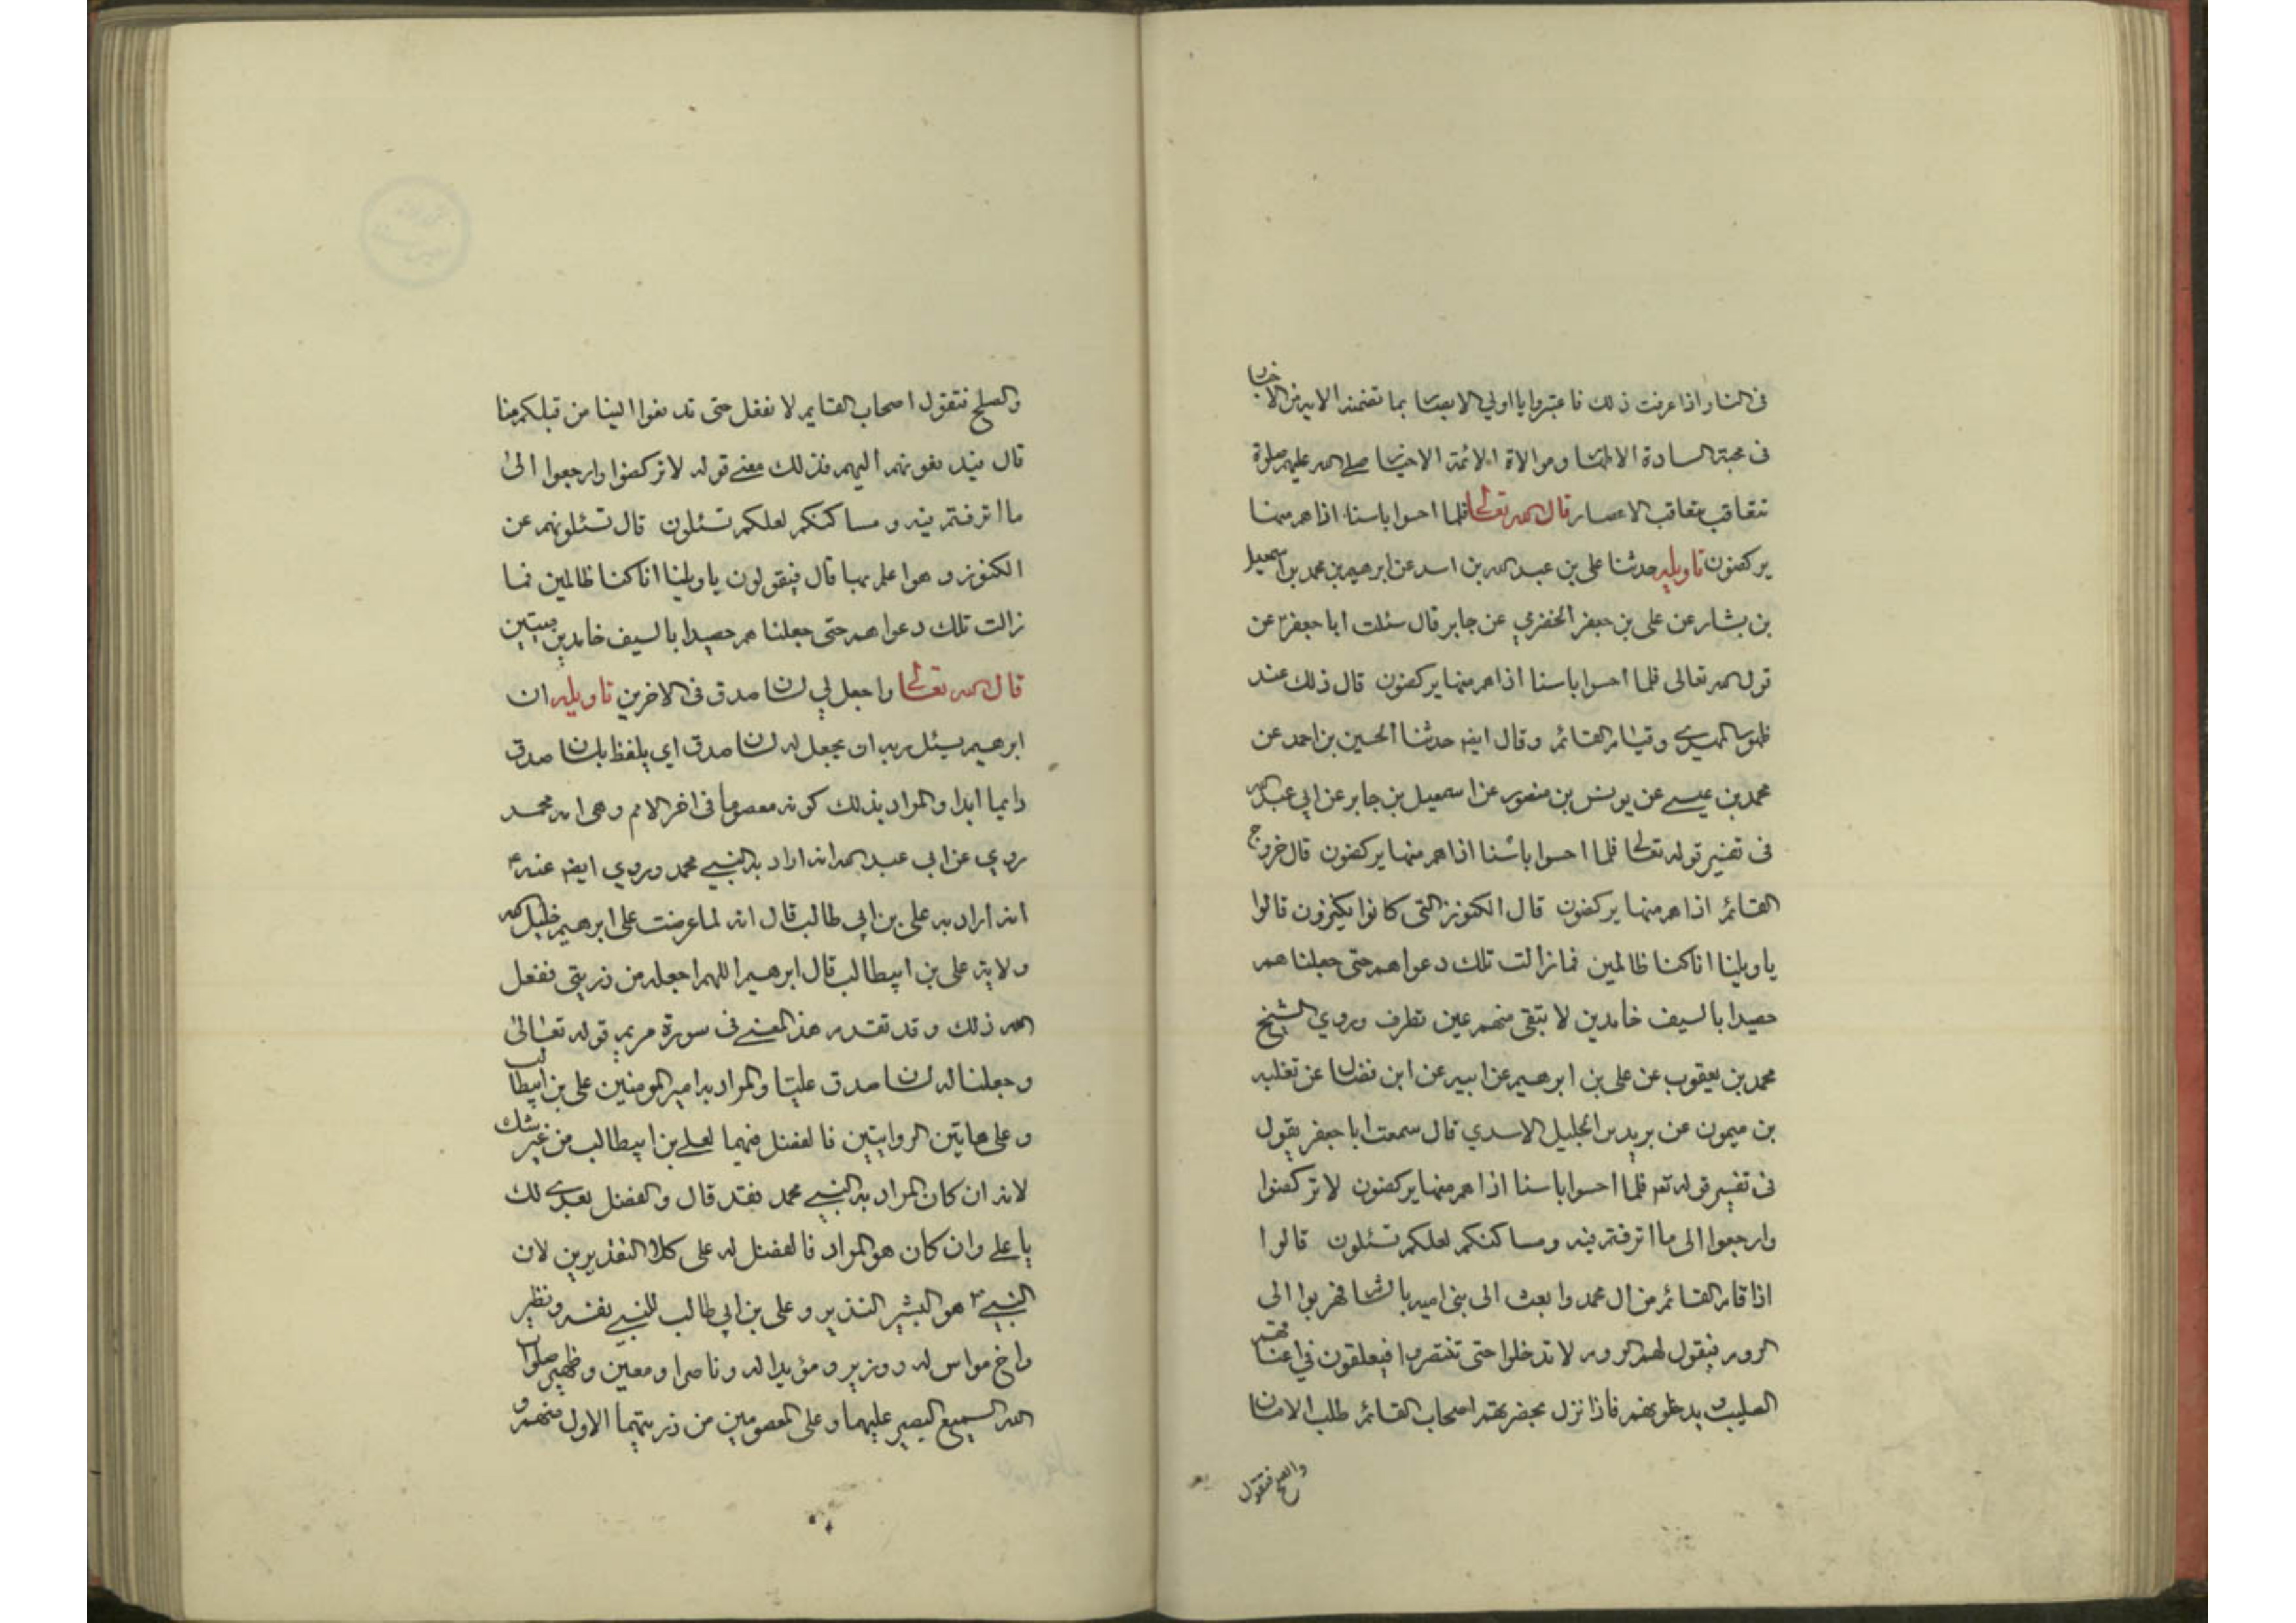 في النار واذا عرفت ذلك فاعتبروا يا اولي الابصار بما تضمنته الاية من الاخبار
في محبة السادة الاطهار وموالاة الائمة الاخيار صلى الله عليهم صلوة
تتعاقب بتعاقب الاعصار قال الله تعالى فلما احسوا باسنا اذا هم منها
يركضون تاويله حدثنا علي بن عبد الله بن اسد عن ابرهيم بن محمد بن اسمعيل
بن بشار عن علي بن جعفر الحضرمي عن جابر قال سئلت ابا جعفر عن
قول الله تعالى فلما احسوا باسنا اذا هم منها يركضون قال ذلك عند
ظهور المهدي وقيام القائم وقال ايضه حدثنا الحسين بن احمد عن
محمد بن عيسى عن يونس بن منصور عن اسمعيل بن جابر عن ابي عبد الله
في تفسير قوله تعالى فلما احسوا باسنا اذا هم منها يركضون قال خروج
القائم اذا هم منها يركضون قال الكنوز التي كانوا يكنزون قالوا
يا ويلنا انا كنا ظالمين فما زالت تلك دعواهم حتى جعلناهم
حصيدا بالسيف خامدين لا تبقى منهم عين تطرف وروي الشيخ
محمد بن يعقوب عن علي بن ابرهيم عن ابيه عن ابن فضال عن تغلبه
بن ميمون عن بريد بن الجليل الاسدي قال سمعت ابا جعفر يقول
في تفسير قوله تعه فلما احسوا باسنا اذا هم منها يركضون لا تركضوا
وارجعوا الى ما اترفتم فيه ومساكنكم لعلكم تسئلون قالوا
اذا قام القائم من ال محمد وابعث الى بني اميه بالشام فهربوا الى
الروم فيقول لهم الروم لا تدخلوا حتى تنتصروا فيعلقون في اعناقهم
الصليب و يدخلونهم فاذا نزل بحضرتهم اصحاب القائم طلب الامان
والصلح فتقول
والصلح فتقول اصحاب القايم لا نفعل حتى تدفعوا الينا من قبلكم منا
قال فيدفعونهم اليهم فذلك معنى قوله لا تركضوا وارجعوا الى
ما اترفتم فيه ومساكنكم لعلكم تسئلون قال تسئلونهم عن
الكنوز وهو اعلم بها قال فيقولون يا ويلنا انا كنا ظالمين فما
زالت تلك دعواهم حتى جعلناهم حصيدا بالسيف خامدين ميتين
قال الله تعالى واجعل لي لسان صدق في الاخرين تاويله ان
ابرهيم يسئل ربه ان يجعل له لسان صدق اي يلفظ بلسان صدق
دايما ابدا والمراد بذلك كونه معصوما في اخر الامم وهي امه محمد
روي عن ابي عبد الله انه اراد به النبي محمد وروي ايضه عنه ع
انه اراد به علي بن ابي طالب قال انه لما عرضت على ابرهيم خليل الله
ولاية علي بن ابيطالب قال ابرهيم اللهم اجعله من ذريتي ففعل
الله ذلك وقد تقدم هذا المعنى في سورة مريم قوله تعالى
وجعلنا له لسان صدق عليا والمراد به امير المومنين علي بن ابيطالب
وعلى هاتين الروايتين فالفضل فيهما لعلي بن ابيطالب من غير شك
لانه ان كان المراد به النبي محمد فقد قال والفضل بعدي لك
يا علي وان كان هو المراد فالفضل له على كلا التقديرين لان
النبي ص هو البشير النذير وعلي بن ابي طالب للنبي نفسه ونظير
واخ مواس له ووزير ومؤيدا له وناصرا ومعين وظهير صلوات
الله السميع البصير عليهما وعلى المعصومين من ذريتهما الاول منهم و